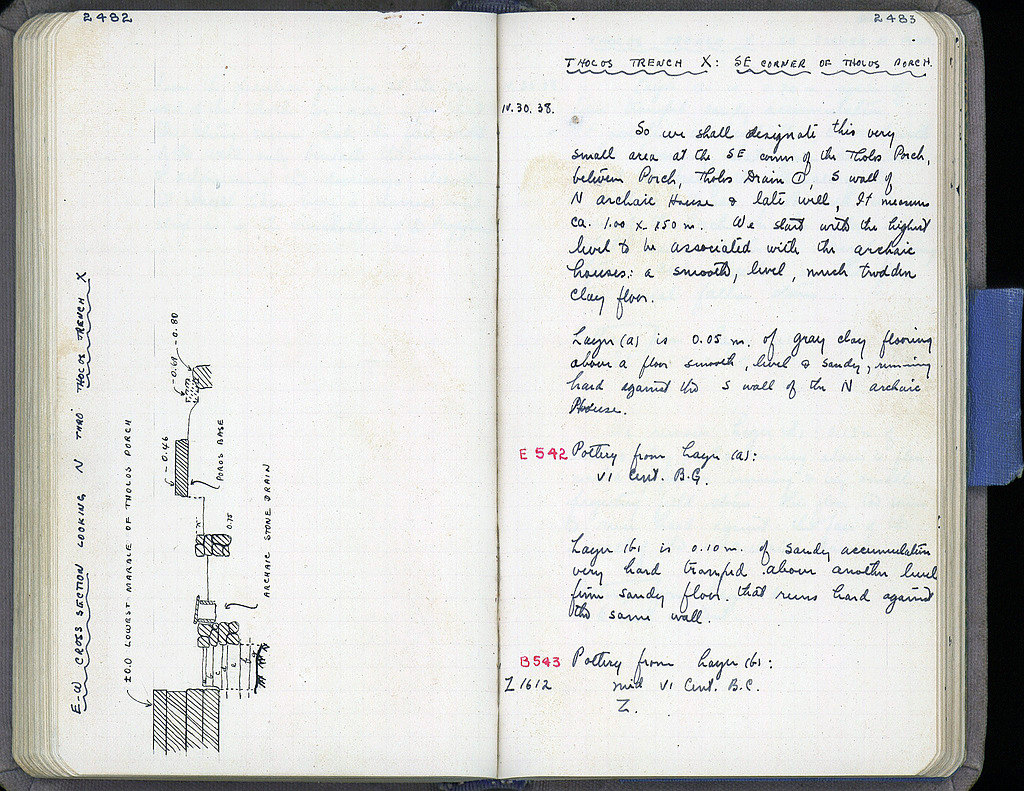 2482
E-W CROSS SECTION LOOKING N THRO' THOLOS TRENCH X
±0.0 LOWEST MARBLE OF THOLOS PORCH
-0.46
-0.69
-0.80
POROS BASE
0.75
ARCHAIC STONE DRAIN
2483
THOLOS TRENCH X: SE CORNER OF THOLOS PORCH.
IV.30.38.
So we shall designate this very
small area at the SE corner of the Tholos Porch,
between Porch, Tholos Drain ①, S wall of
N archaic House & late well, It measures
ca. 1.00 x 1.50 m. We start with the highest
level to be associated with the archaic
houses: a smooth, level, much trodden
clay floor.
Layer (a) is 0.05 m. of gray clay flooring
above a floor smooth, level & sandy, running
hard against the S wall of the N archaic
House.
E 542 Pottery from Layer (a):
VI Cent. B.C.
Layer (b) is 0.10 m. of sandy accumulation
very hard tramped above another level
firm sandy floor. that runs hard against
the same wall.
B 543 Pottery from Layer (b):
Z 1612 mid VI Cent. B.C.
Z.